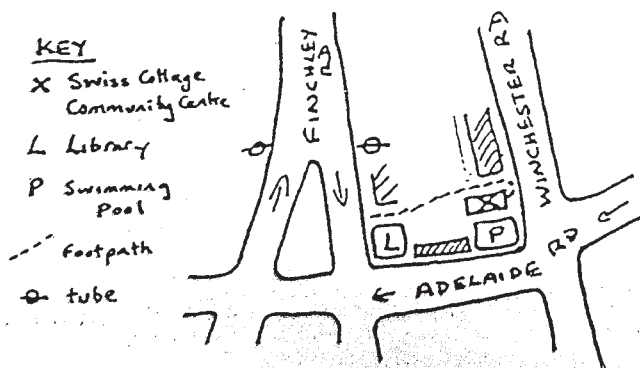 KEY
X Swiss Cottage
Community Centre
L Library
P Swimming
Pool
Footpath
tube
FINCHLEY
RD
WINCHESTER RD
L
P
ADELAIDE RD